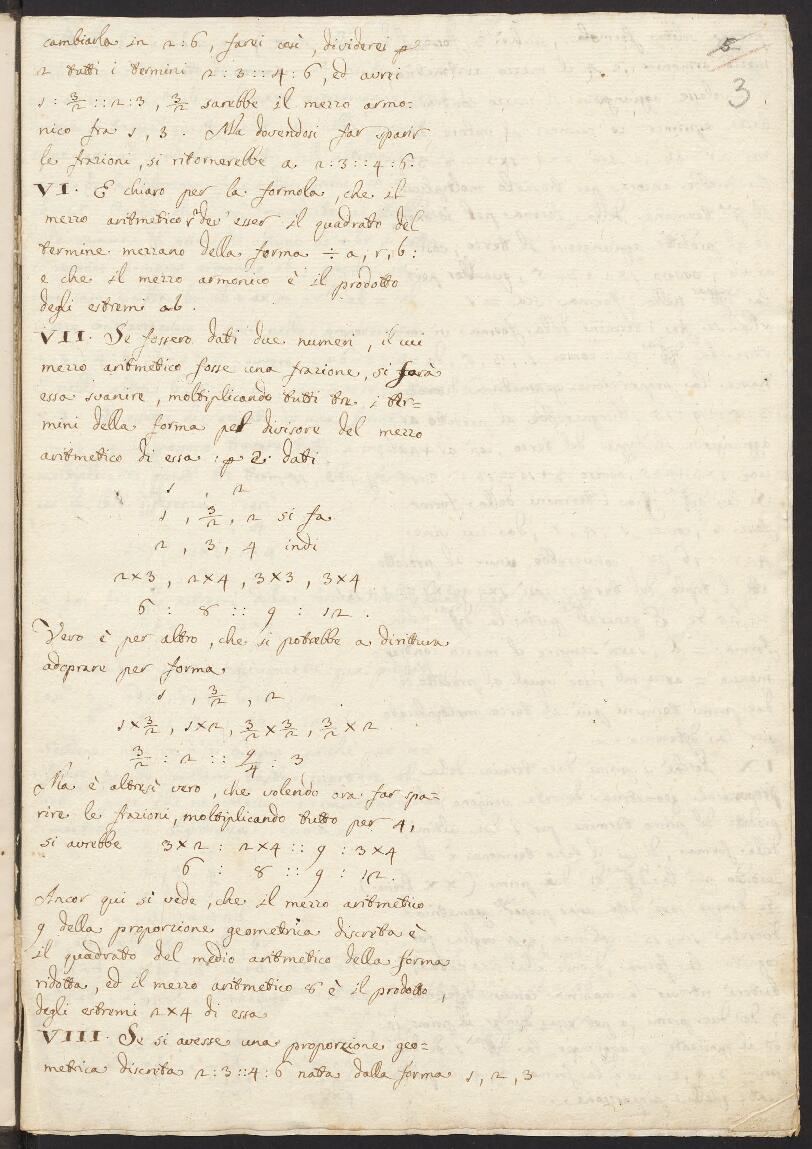 cambiarla in 2:6, farei così, dividerei p
2 tutti i termini 2:3::4:6, ed avrei
1: 3/2 ::2:3, 3/2 sarebbe il mezzo armo-
nico fra 1, 3. Ma dovendosi far sparir
le frazioni, si ritornerebbe a 2:3::4:6.
VI. E chiaro per la formola, che il
mezzo aritmetico r² dev' esser il quadrato del
termine mezzano della forma ÷ a, r, b:
e che il mezzo armonico è il prodotto
degli estremi ab.
VII. Se fossero dati due numeri, il cui
mezzo aritmetico fosse una frazione, si farà
essa svanire, moltiplicando tutti tre i ter=
mini della forma pel divisore del mezzo
aritmetico di essa: p 2. dati
1, 2
1, 3/2, 2 si fa
2, 3, 4 indi
2×3, 2×4, 3×3, 3×4
6 : 8 :: 9 : 12.
Vero è per altro, che si potrebbe a dirittura
adoprare per forma
1, 3/2, 2
1×3/2, 1×2, 3/2×3/2, 3/2×2
3/2 : 2 :: 9/4 : 3
Ma è altresì vero, che volendo ora far spa=
rire le frazioni, moltiplicando tutto per 4,
si avrebbe 3×2 : 2×4 :: 9 : 3×4
6 : 8 :: 9 : 12.
Ancor qui si vede, che il mezzo aritmetico
9 della proporzione geometrica discreta è
il quadrato del medio aritmetico della forma
ridotta, ed il mezzo aritmetico 8 è il prodotto,
degli estremi 2×4 di essa
VIII. Se si avesse una proporzione geo=
metrica discreta 2:3::4:6 nata dalla forma 1, 2, 3
5
3